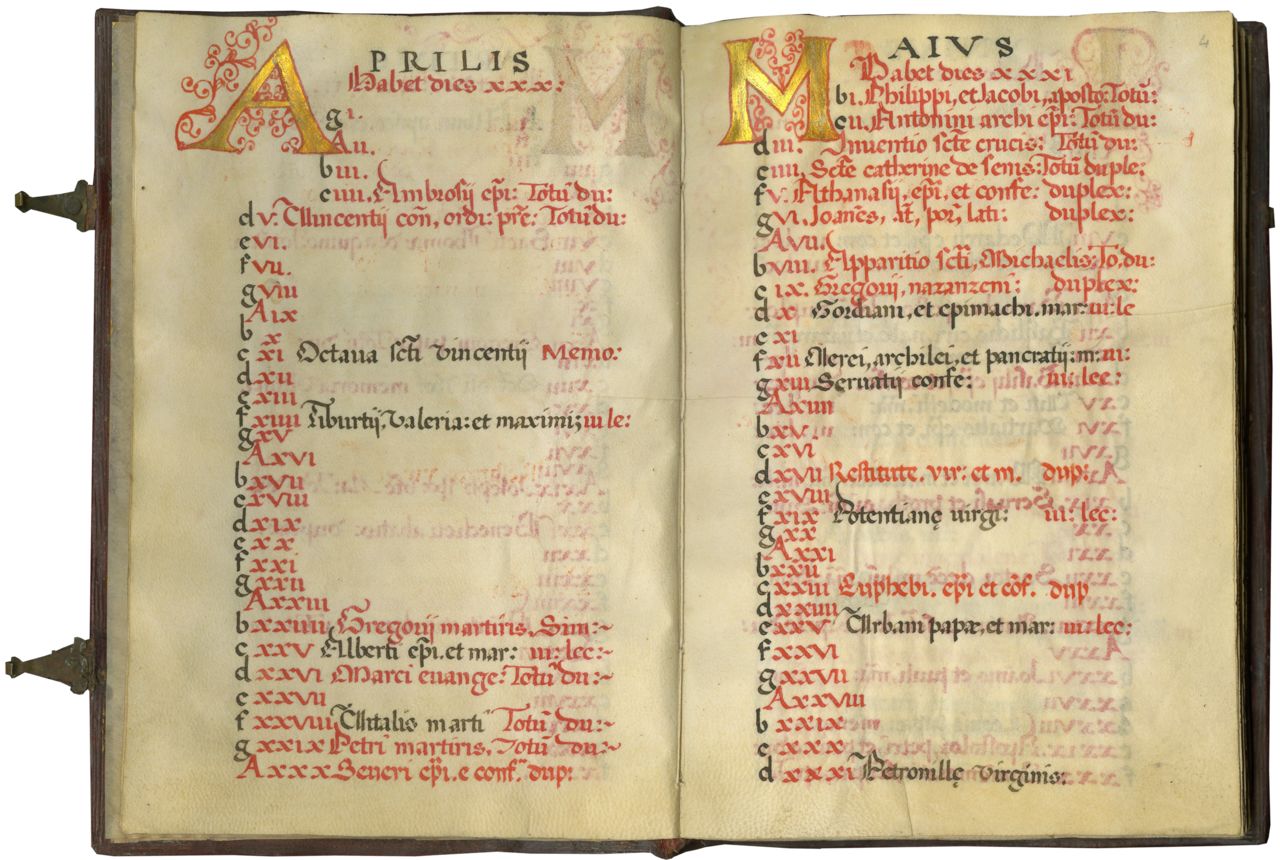 APRILIS
Habet dies xxx:
g i.
A ii.
b iii.
c iiii. Ambrosij ep̃i: Totũ du:
d v. Vincentij con, ordi: pr̃e: Totũ du:
e vi.
f vii.
g viii
A ix
b x
c xi Octaua sc̃ti Vincentij Memo:
d xii
e xiii
f xiiii Tiburtij. Valeria: et maximi; iii le:
g xv
A xvi
b xvii
c xviii
d xix
e xx
f xxi
g xxii
A xxiii
b xxiiii Gregorij martiris. Sim:~
c xxv Alberti ep̃i. et mar: iii: lec:~
d xxvi Marci euange: Totũ du:~
e xxvii
f xxviii Vitalis marti Totũ du:~
g xxix Petri martiris. Totũ du:~
A xxx Seueri ep̃i. e conf. dup:
MAIVS
4
Habet dies xxxi
b i. Philippi, et Jacobi, aposto: Totũ:
c ii. Antonini archi ep̃i: Totũ du:
d iii. Inuentio sc̃te crucis: Totũ du:
e iiii, Sc̃te catherine de senis: Totũ duple:
f v. Athanasij, ep̃i. et confe: duplex:
g vi. Joanẽs, ãt, por̃, lati: duplex:
A vii.
b viii. Apparitio sc̃ti, Michaelis: To. du:
c ix. Gregorij, nazanzeni: duplex:
d x Gordiani, et epimachi. mar: iii: le
e xi
f xii Nerei, archilei, et pancratij: m: iii:
g xiii Seruatij confe: iii: lec:
A xiiii
b xv
c xvi
d xvii Restitute. vir: et m. dup:
e xviii
f xix Potentianę uirgi: iii: lec:
g xx
A xxi
b xxii
c xxiii Euphebi. ep̃i et cõf. dup
d xxiiii
e xxv Urbani papæ, et mar: iii: lec:
f xxvi
g xxvii
A xxviii
b xxix
c xxx
d xxxi Petronillę Virginis: